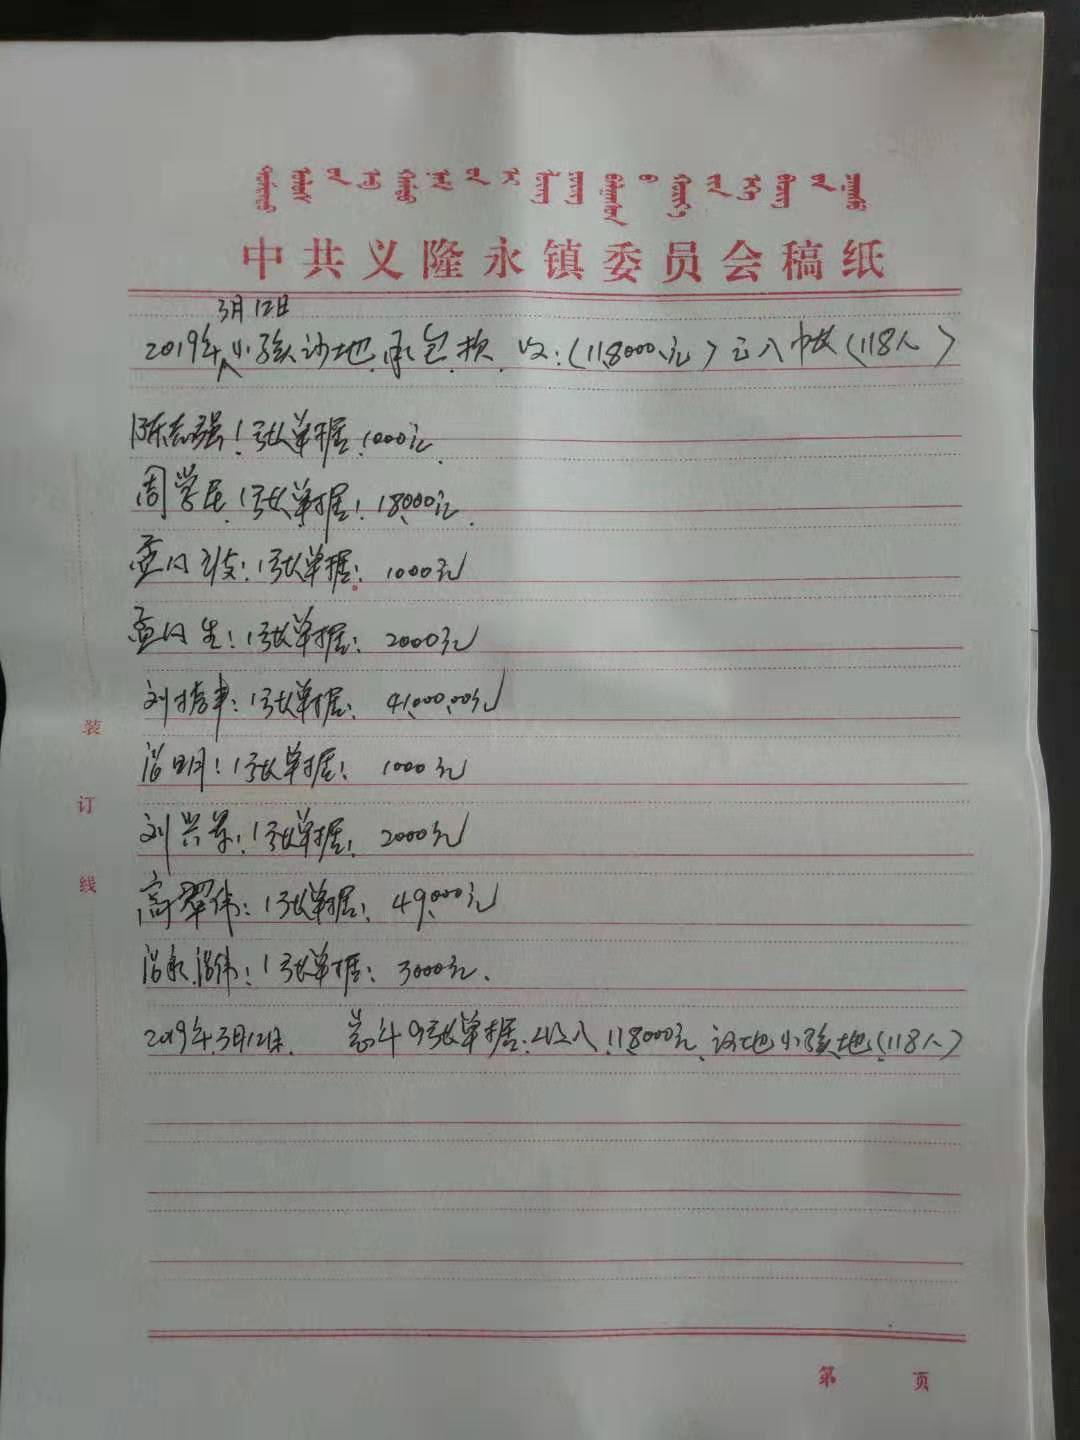 中共义隆永镇委员会稿纸
3月12日
2019年小孩沙地承包款 收:(118000元)已入帐(118人)
陈志强:1张单据,1000元
周学民,1张单据:18000元
孟凡:1张单据:1000元
孟凡生:1张单据:2000元
刘:1张单据:41,000.00元
明:1张单据:1000元
刘兴军:1张单据,2000元
高翠伟:1张单据:49,000元
伟:1张单据:3000元.
2019年3月12日. 总计9张单据,收入118000元,沙地小孩地(118人)
装
订
线
第 页